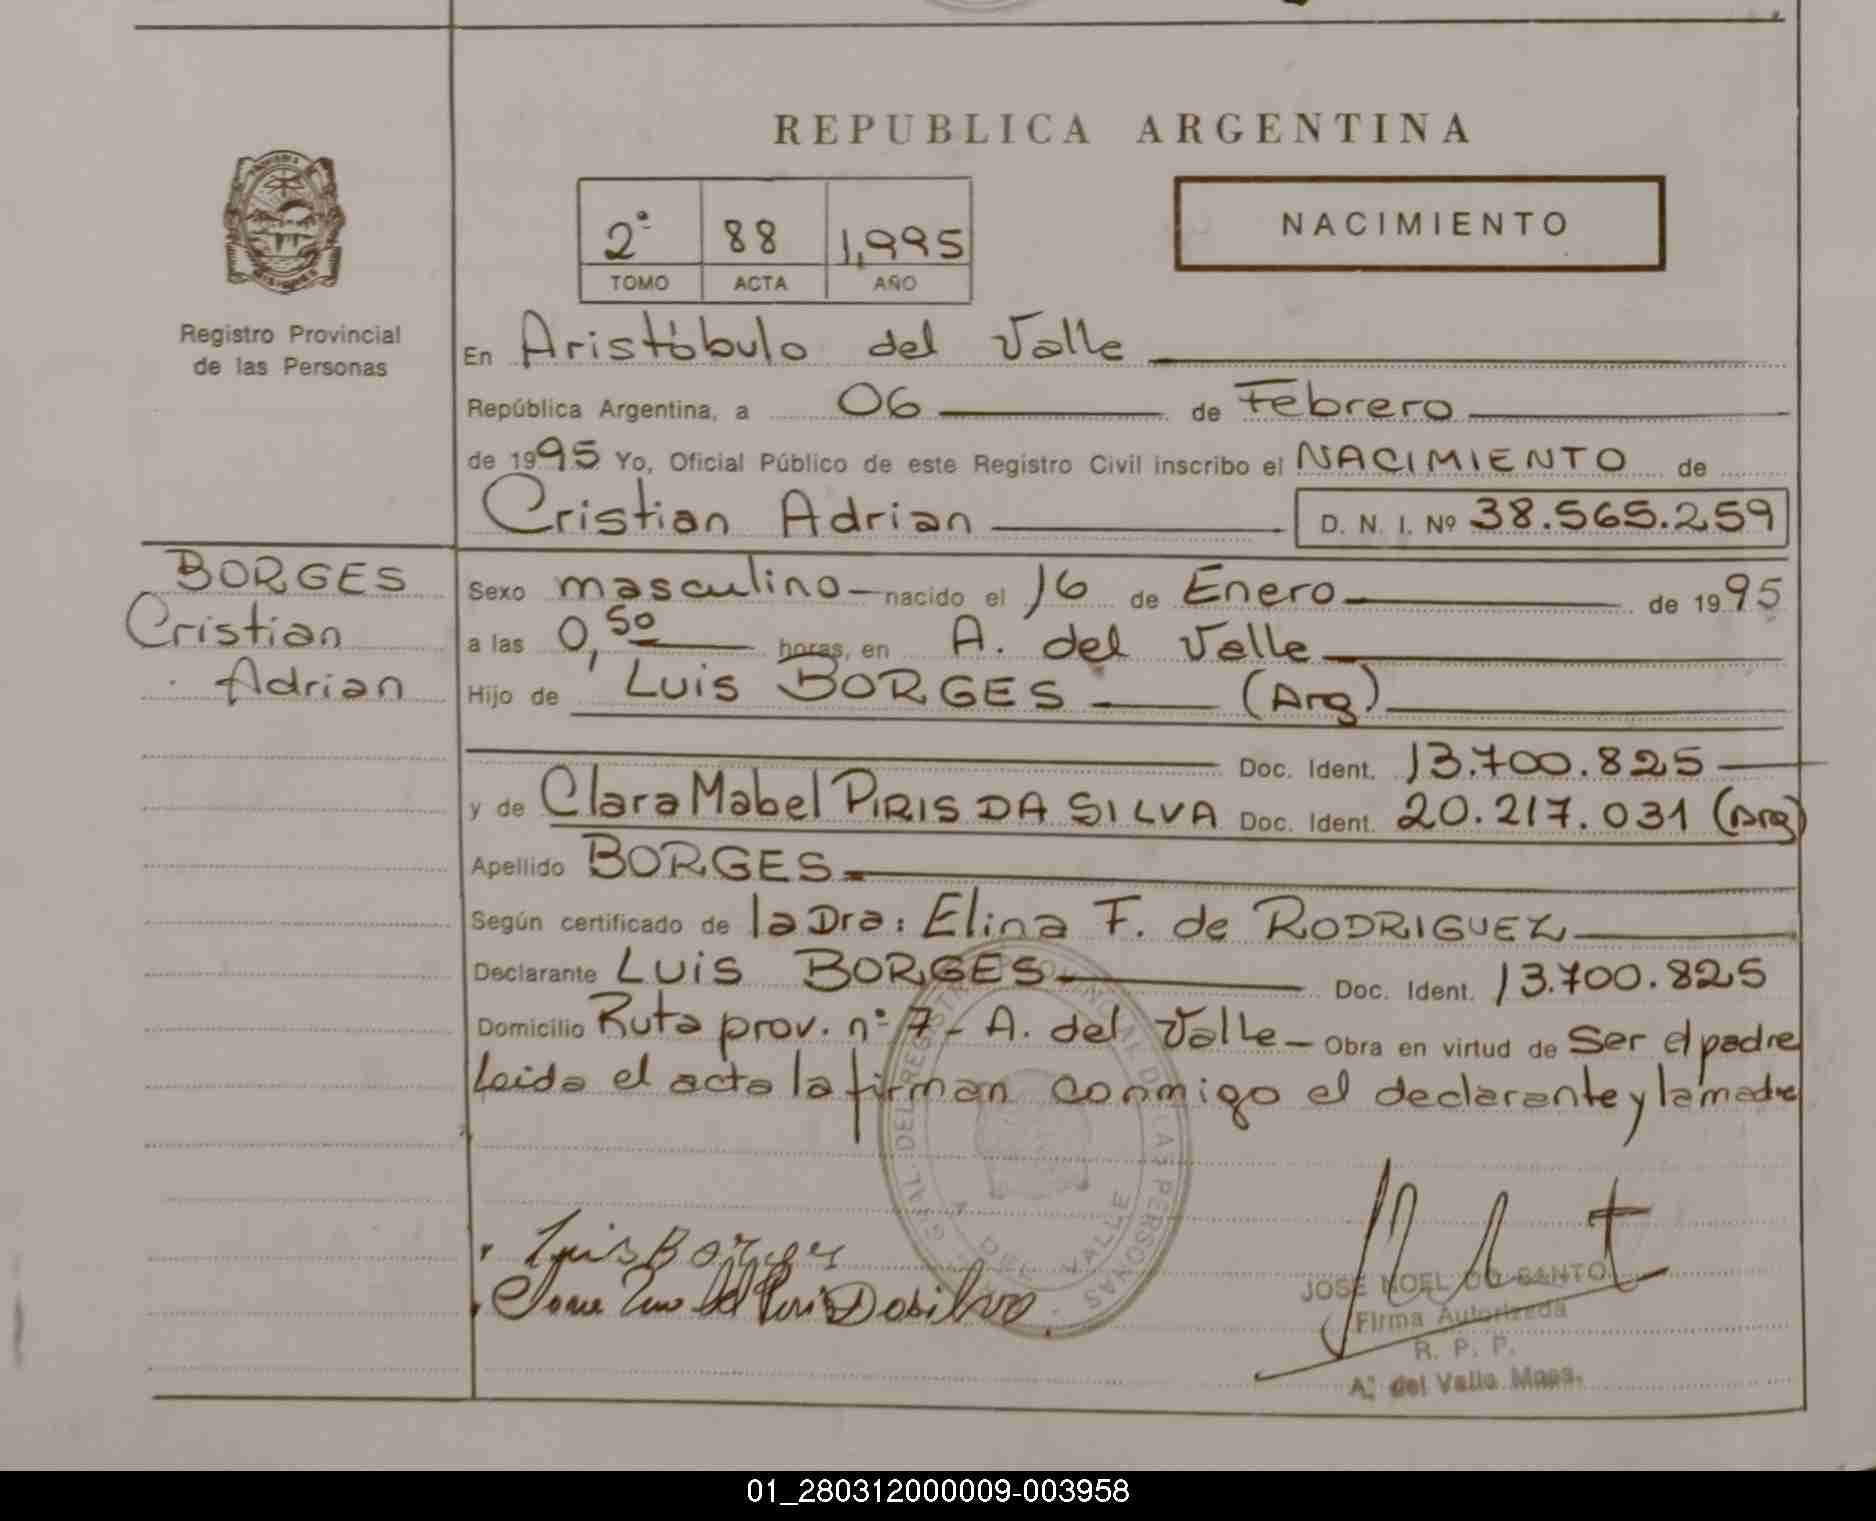 REPUBLICA ARGENTINA
2º 88 1,995
TOMO ACTA AÑO
NACIMIENTO
Registro Provincial
de las Personas
En Aristóbulo del Valle
República Argentina, a 06 de Febrero
de 1995 Yo, Oficial Público de este Registro Civil inscribo el NACIMIENTO de
Cristian Adrian D. N. I. Nº 38.565.259
BORGES
Cristian
Adrian
Sexo masculino nacido el 16 de Enero de 1995
a las 0,50 horas, en A. del Valle
Hijo de Luis BORGES (Arg)
Doc. Ident. 13.700.825
y de Clara Mabel PIRIS DA SILVA Doc. Ident. 20.217.031 (Arg)
Apellido BORGES
Según certificado de la Dra: Elina F. de RODRIGUEZ
Declarante Luis BORGES Doc. Ident. 13.700.825
Domicilio Ruta prov. nº 7 - A. del Valle - Obra en virtud de Ser el padre
Leida el acta la firman conmigo el declarante y la madre
DEL REGISTRO PROVINCIAL DE LAS PERSONAS
A DEL VALLE
Luis Borges
JOSE NOEL DO SANTO
Firma Autorizada
R. P. P.
Aº del Valle Mnes.
01_280312000009-003958